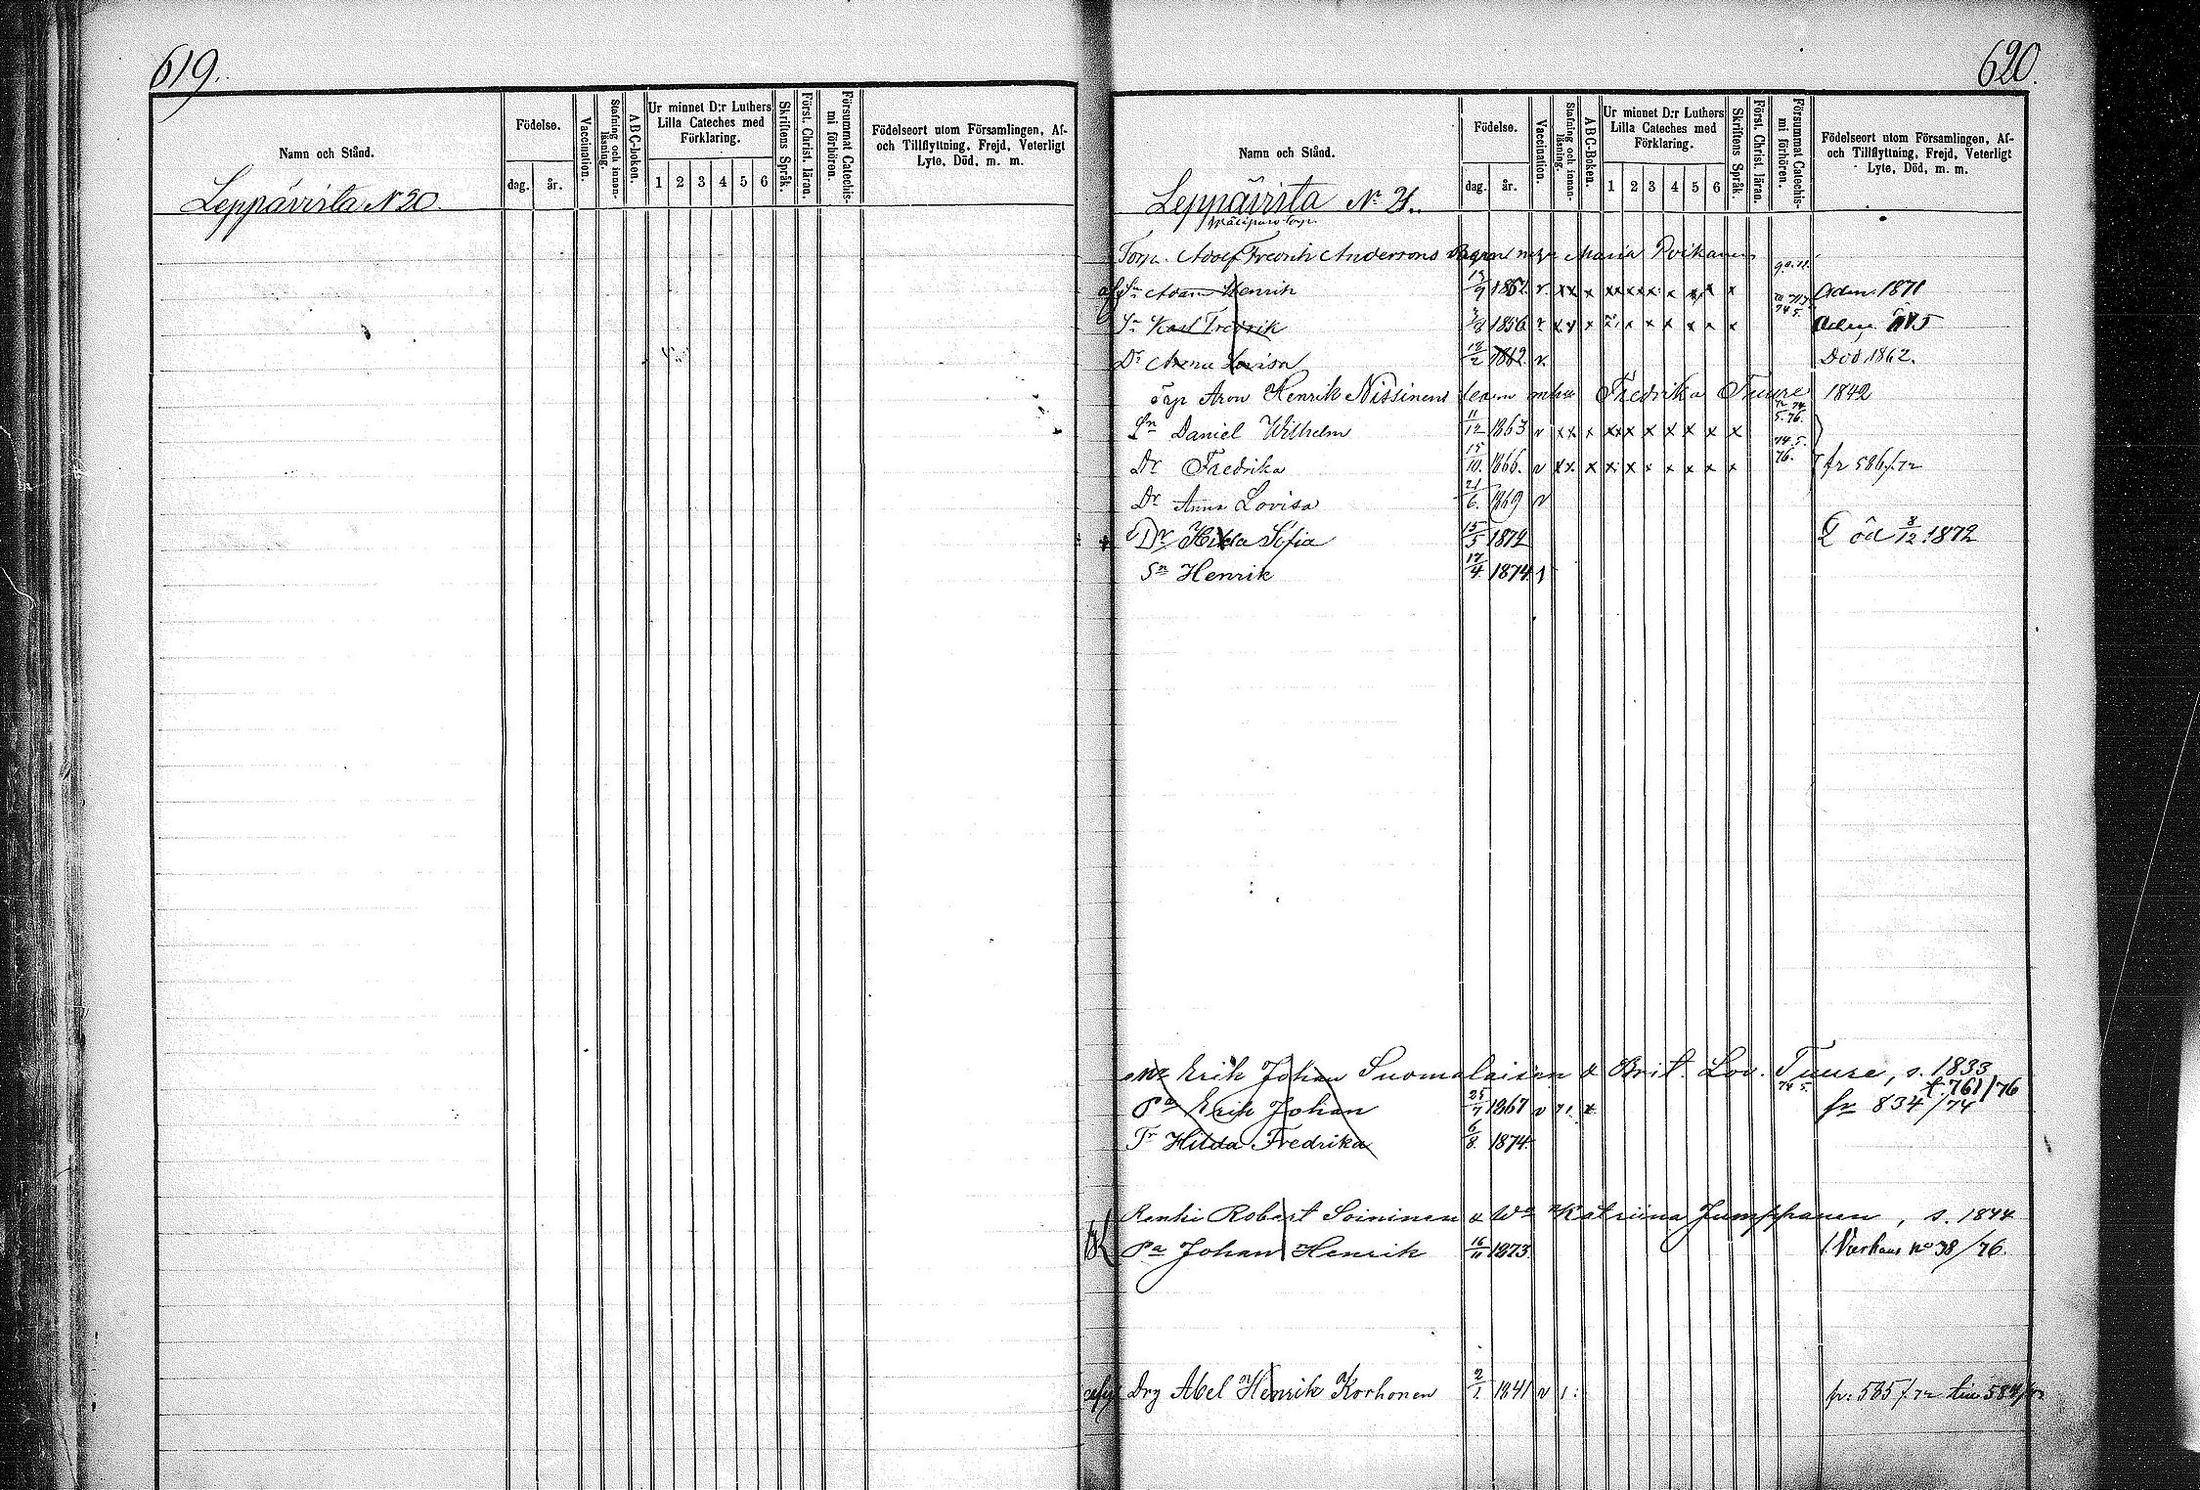 619.
Namn och Stånd.
Födelse.
dag. år.
Vaccination.
Stafning och innan-läsning.
A B C-boken.
Ur minnet D:r Luthers
Lilla Cateches med
Förklaring.
1 2 3 4 5 6
Skriftens Språk.
Först. Christ. läran.
Försummat Catechis-mi förhören.
Födelseort utom Församlingen, Af-
och Tillflyttning, Frejd, Veterligt
Lyte, Död, m. m.
Leppävirta N 20.
620.
Namn och Stånd.
Födelse.
dag. år.
Vaccination.
Stafning och innan-läsning.
A B C-Boken.
Ur minnet D:r Luthers
Lilla Cateches med
Förklaring.
1 2 3 4 5 6
Skriftens Språk.
Först. Christ. läran.
Försummat Catechis-mi förhören.
Födelseort utom Församlingen, Af-
och Tillflyttning, Frejd, Veterligt
Lyte, Död, m. m.
Leppävirta No 21.
Torp. Adolf Fredrik Anderssons Maria Poikanen
Sn Adam Henrik Adm. 1871
Sn Karl Fredrik 3/8 1856 Adm.
Dr Anna Lovisa 18/2 1862 v. Död 1862.
Aron Henrik Nissinens Fredrika Tuure 1842
Sn Daniel Wilhelm 11/12 1863 v xx x xx x x x x x x
Dr Fredrika 15/10 1866. v xx x x x x x x x x fr 586/72
Dr Anna Lovisa 21/6 1869 v
Dr Hilda Sofia 15/5 1872 Död 8/12 1872
Sn Henrik 17/4 1874
Erik Johan Suomalainen & Brit. Lov. Tuure, s. 1833
f. 761/76
Pa Erik Johan 25/7 1867 v x fr 834/74
Tr Hilda Fredrika 6/8 1874
Renki Robert Soininen & Wo Katriina Jumppanen, s. 1844
Pa Johan Henrik 16/11 1873 no 38/76.
Drg Abel Henrik Korhonen 2/1 1841 v fr: 565/72